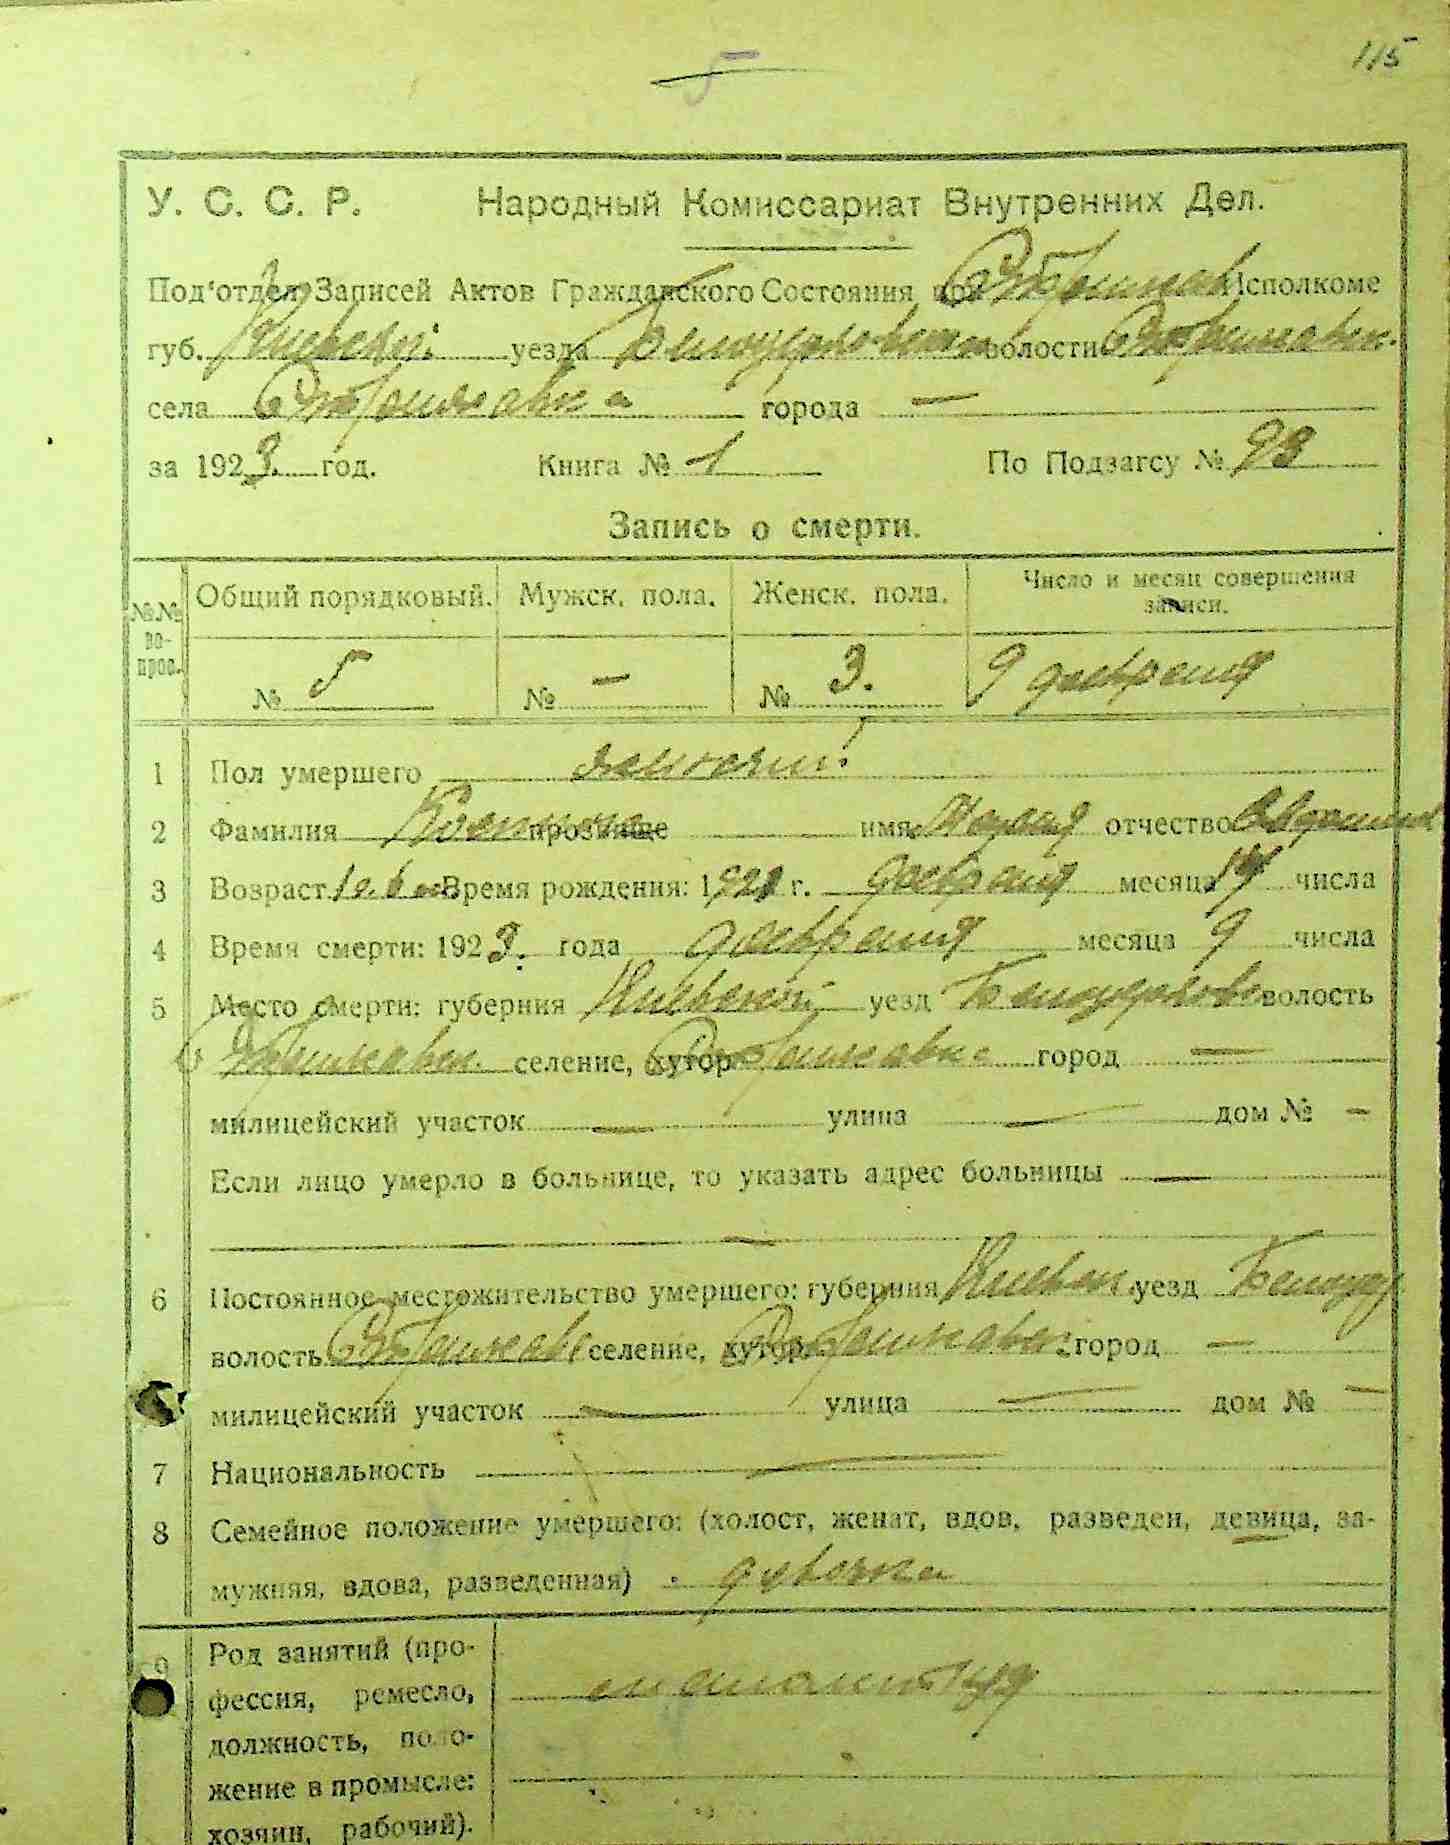 115
5
У. С. С. Р. Народный Комиссариат Внутренних Дел.
Под'отдел Записей Актов Гражданского Состояния при Исполкоме
губ. Киевской уезда Белоцерковского волости
села города —
за 1923 год. Книга № 1 По Подзагсу № 93
Запись о смерти.
№№ во-прос. Общий порядковый. Мужск. пола. Женск. пола. Число и месяц совершения записи.
№ 5 № — № 3. 9 февраля
1 Пол умершего женский
2 Фамилия прозвище имя отчество
3 Возраст Время рождения: 192 г. февраля месяца числа
4 Время смерти: 1923. года февраля месяца 9 числа
5 Место смерти: губерния Киевской уезд Белоцерковс волость
селение, хутор город —
милицейский участок — улица — дом № —
Если лицо умерло в больнице, то указать адрес больницы —
—
6 Постоянное местожительство умершего: губерния Киевск. уезд Белоцер
волость селение, хутор город —
милицейский участок — улица — дом № —
7 Национальность —
8 Семейное положение умершего: (холост, женат, вдов, разведен, девица, за-
мужняя, вдова, разведенная)
9 Род занятий (про-
фессия, ремесло,
должность, поло-
жение в промысле:
хозяин, рабочий).